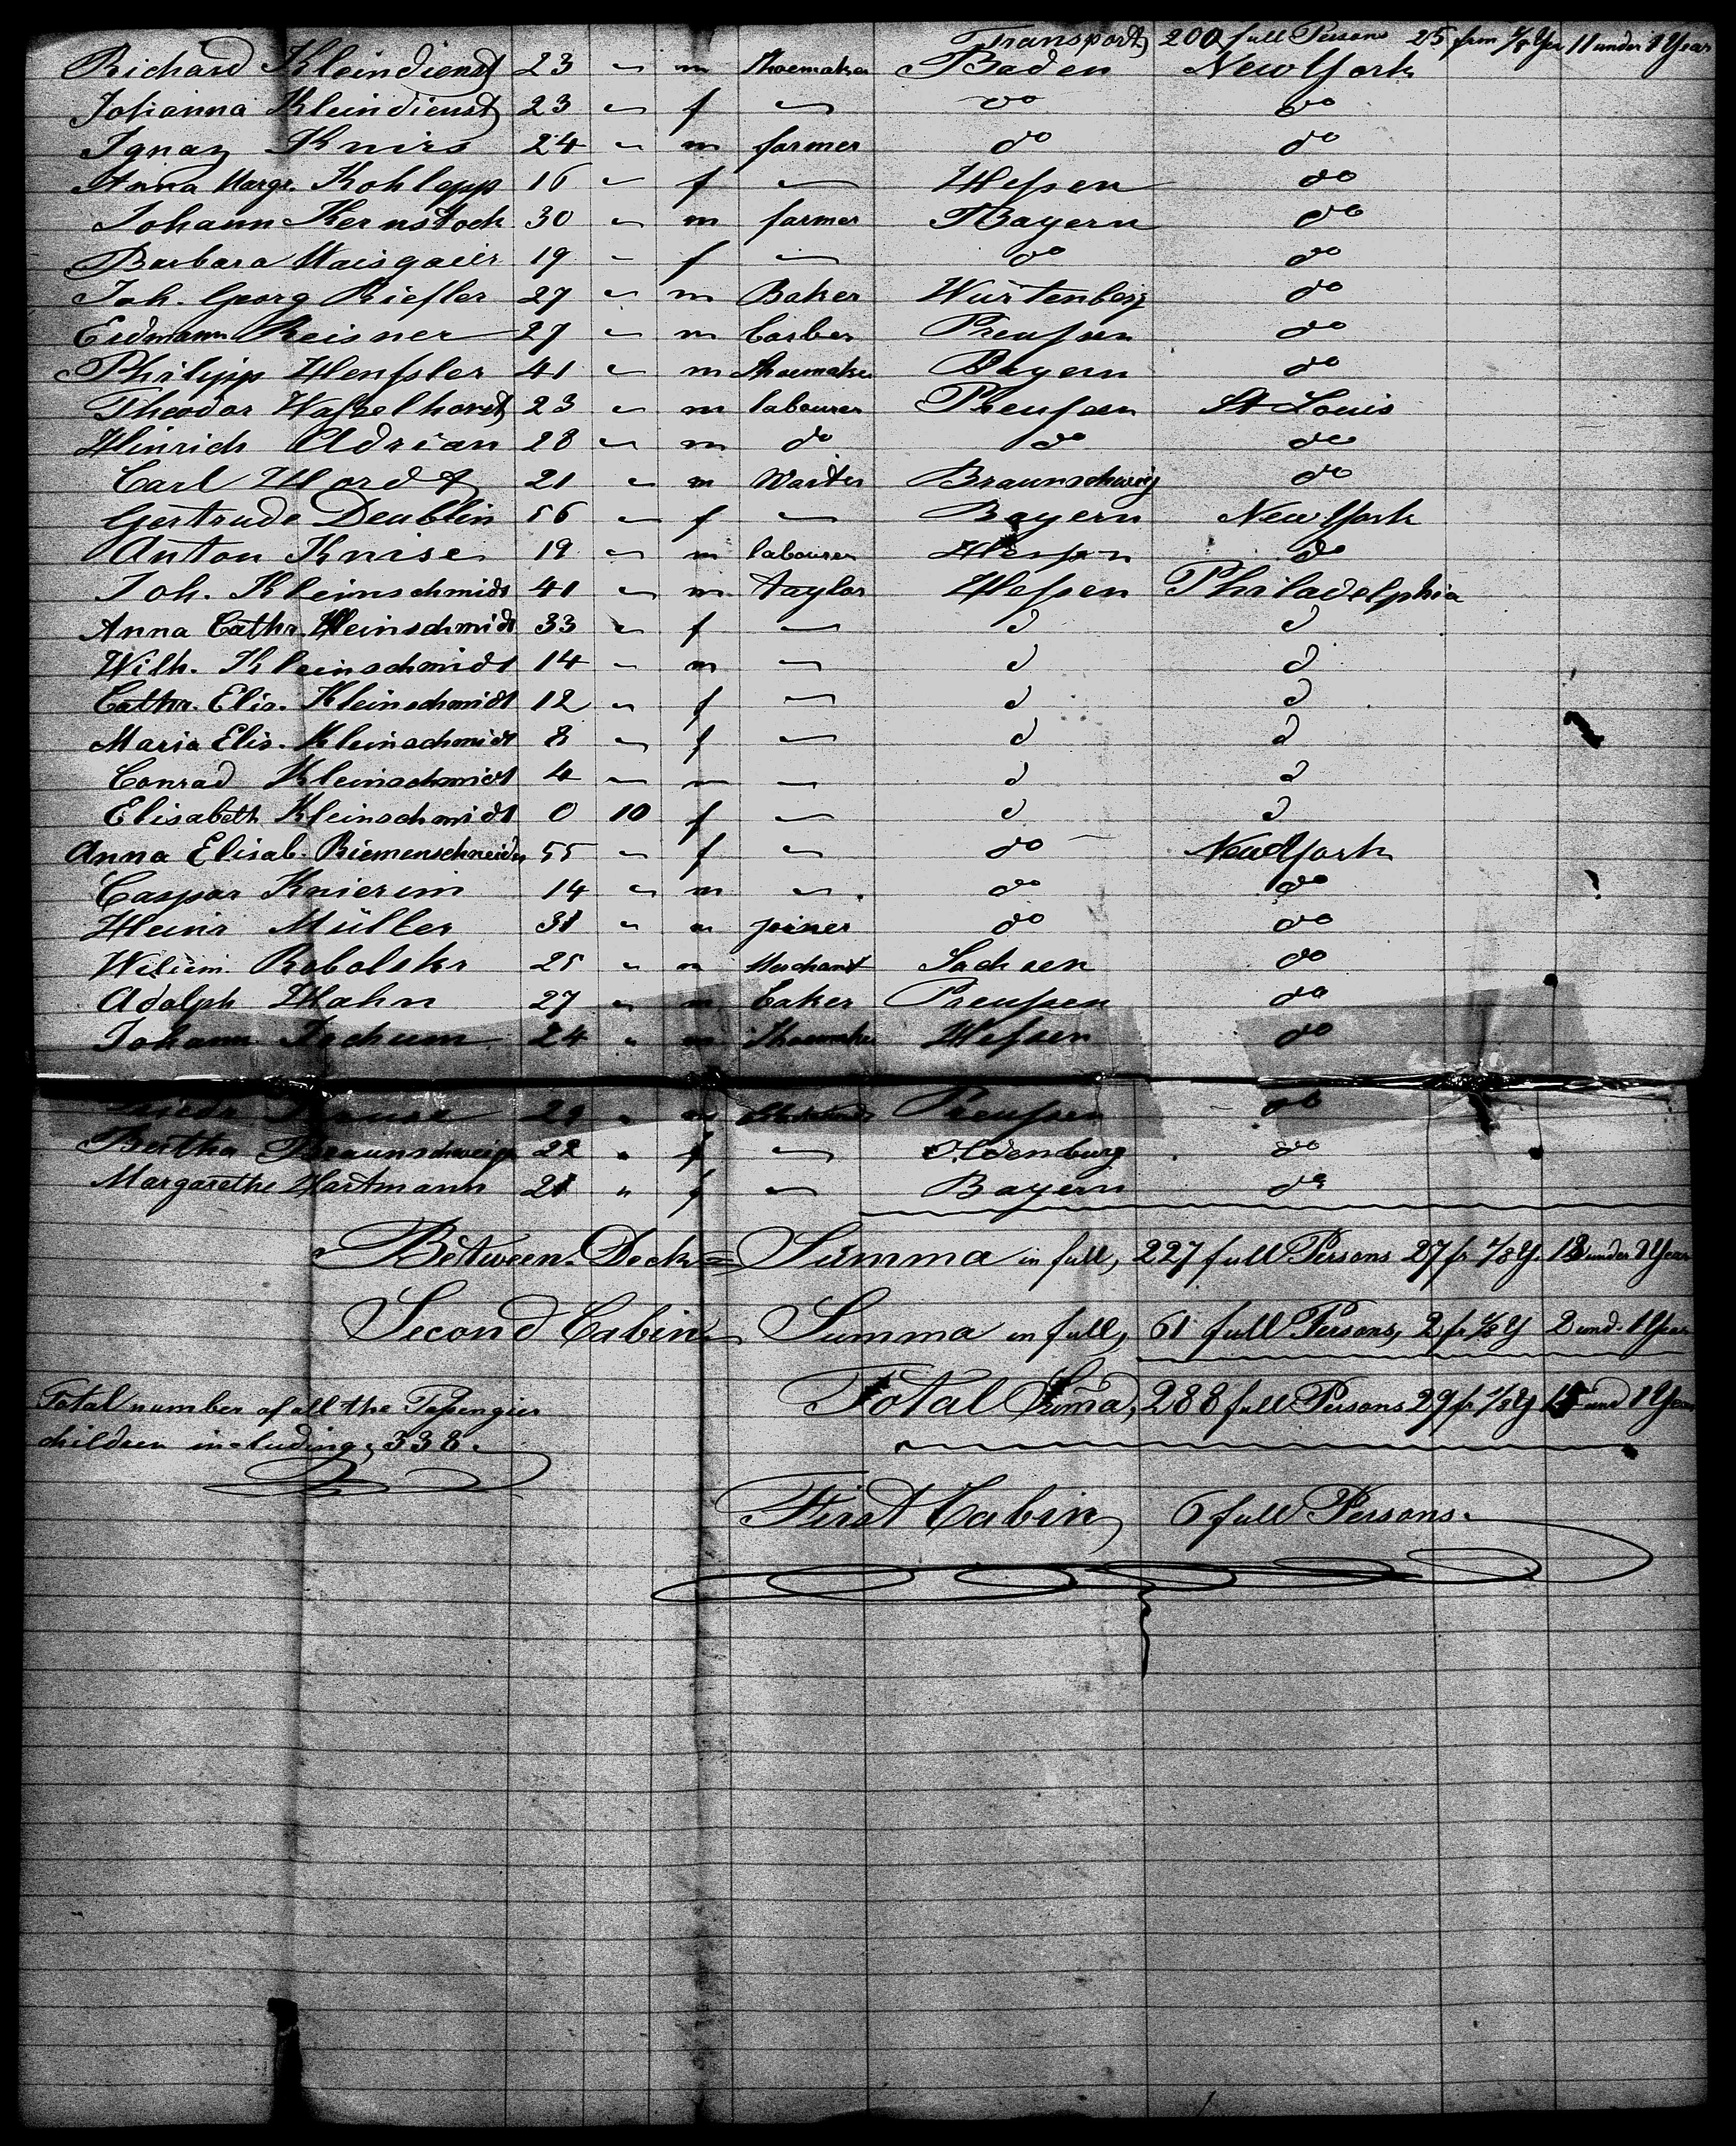 Transport, 200 full Persons 25 from 1/8 Year 11 under 1 Year
Richard Kleindienst 23 " m Shoemaker Baden New York
Johanna Kleindienst 23 " f " do do
Ignaz Knirs 24 " m farmer do do
Anna Margr. Kohlepp 16 " f " Hessen do
Johann Kernstock 30 " m farmer Bayern do
Barbara 19 " f " do do
Joh. Georg Riefler 27 " m Baker Würtenberg do
Erdmann Reisner 27 " m barber Preussen do
Philipp Henssler 41 " m Shoemaker Bayern do
Theodor 23 " m labourer Preussen St Louis
Heinrich Adrian 28 " m do do do
Carl Hordt 21 " m Waiter Braunschweig do
Gertrude Deublin 56 " f " Bayern New York
Anton Knise 19 " m labourer Hessen do
Joh. Kleinschmidt 41 " m taylor Hessen Philadelphia
Anna Cathr. Kleinschmidt 33 " f " d d
Wilh. Kleinschmidt 14 " m " d d
Cathr. Elis. Kleinschmidt 12 " f " d d
Maria Elis. Kleinschmidt 8 " f " d d
Conrad Kleinschmidt 4 " m " d d
Elisabeth Kleinschmidt 0 10 f " d d
Anna Elisab. Riemenschneider 55 " f " do New York
Caspar Knierim 14 " m " do do
Heinr Müller 31 " m joiner do do
Robolski 25 " m Merchant Sachsen do
Adolph Hahn 27 " m baker Preussen do
Johann Jochum 24 " m Shoemaker Hessen do
Friedr Krause 29 " m Preussen do
Bertha Braunschweig 22 " f " Oldenburg do
Margarethe Hartmann 21 " f " Bayern do
Between Deck = Summa in full, 227 full Persons 27 fr 1/8 Y. 13 under 1 Year
Second Cabin = Summa in full, 61 full Persons, 2 fr 1/8 Y 2 und. 1 Year
Total Suma, 288 full Persons 29 fr 1/8 Y 15 und 1 Year
Total number of all the Passengier
children including, 338.
First Cabin, 6 full Persons.